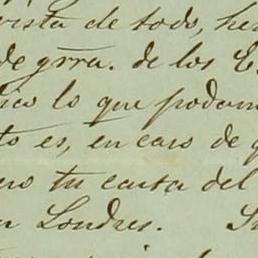 vista de todo, he
de grra. de los E
lo que podam
to es, en caso de q
tu carta del
Londres.